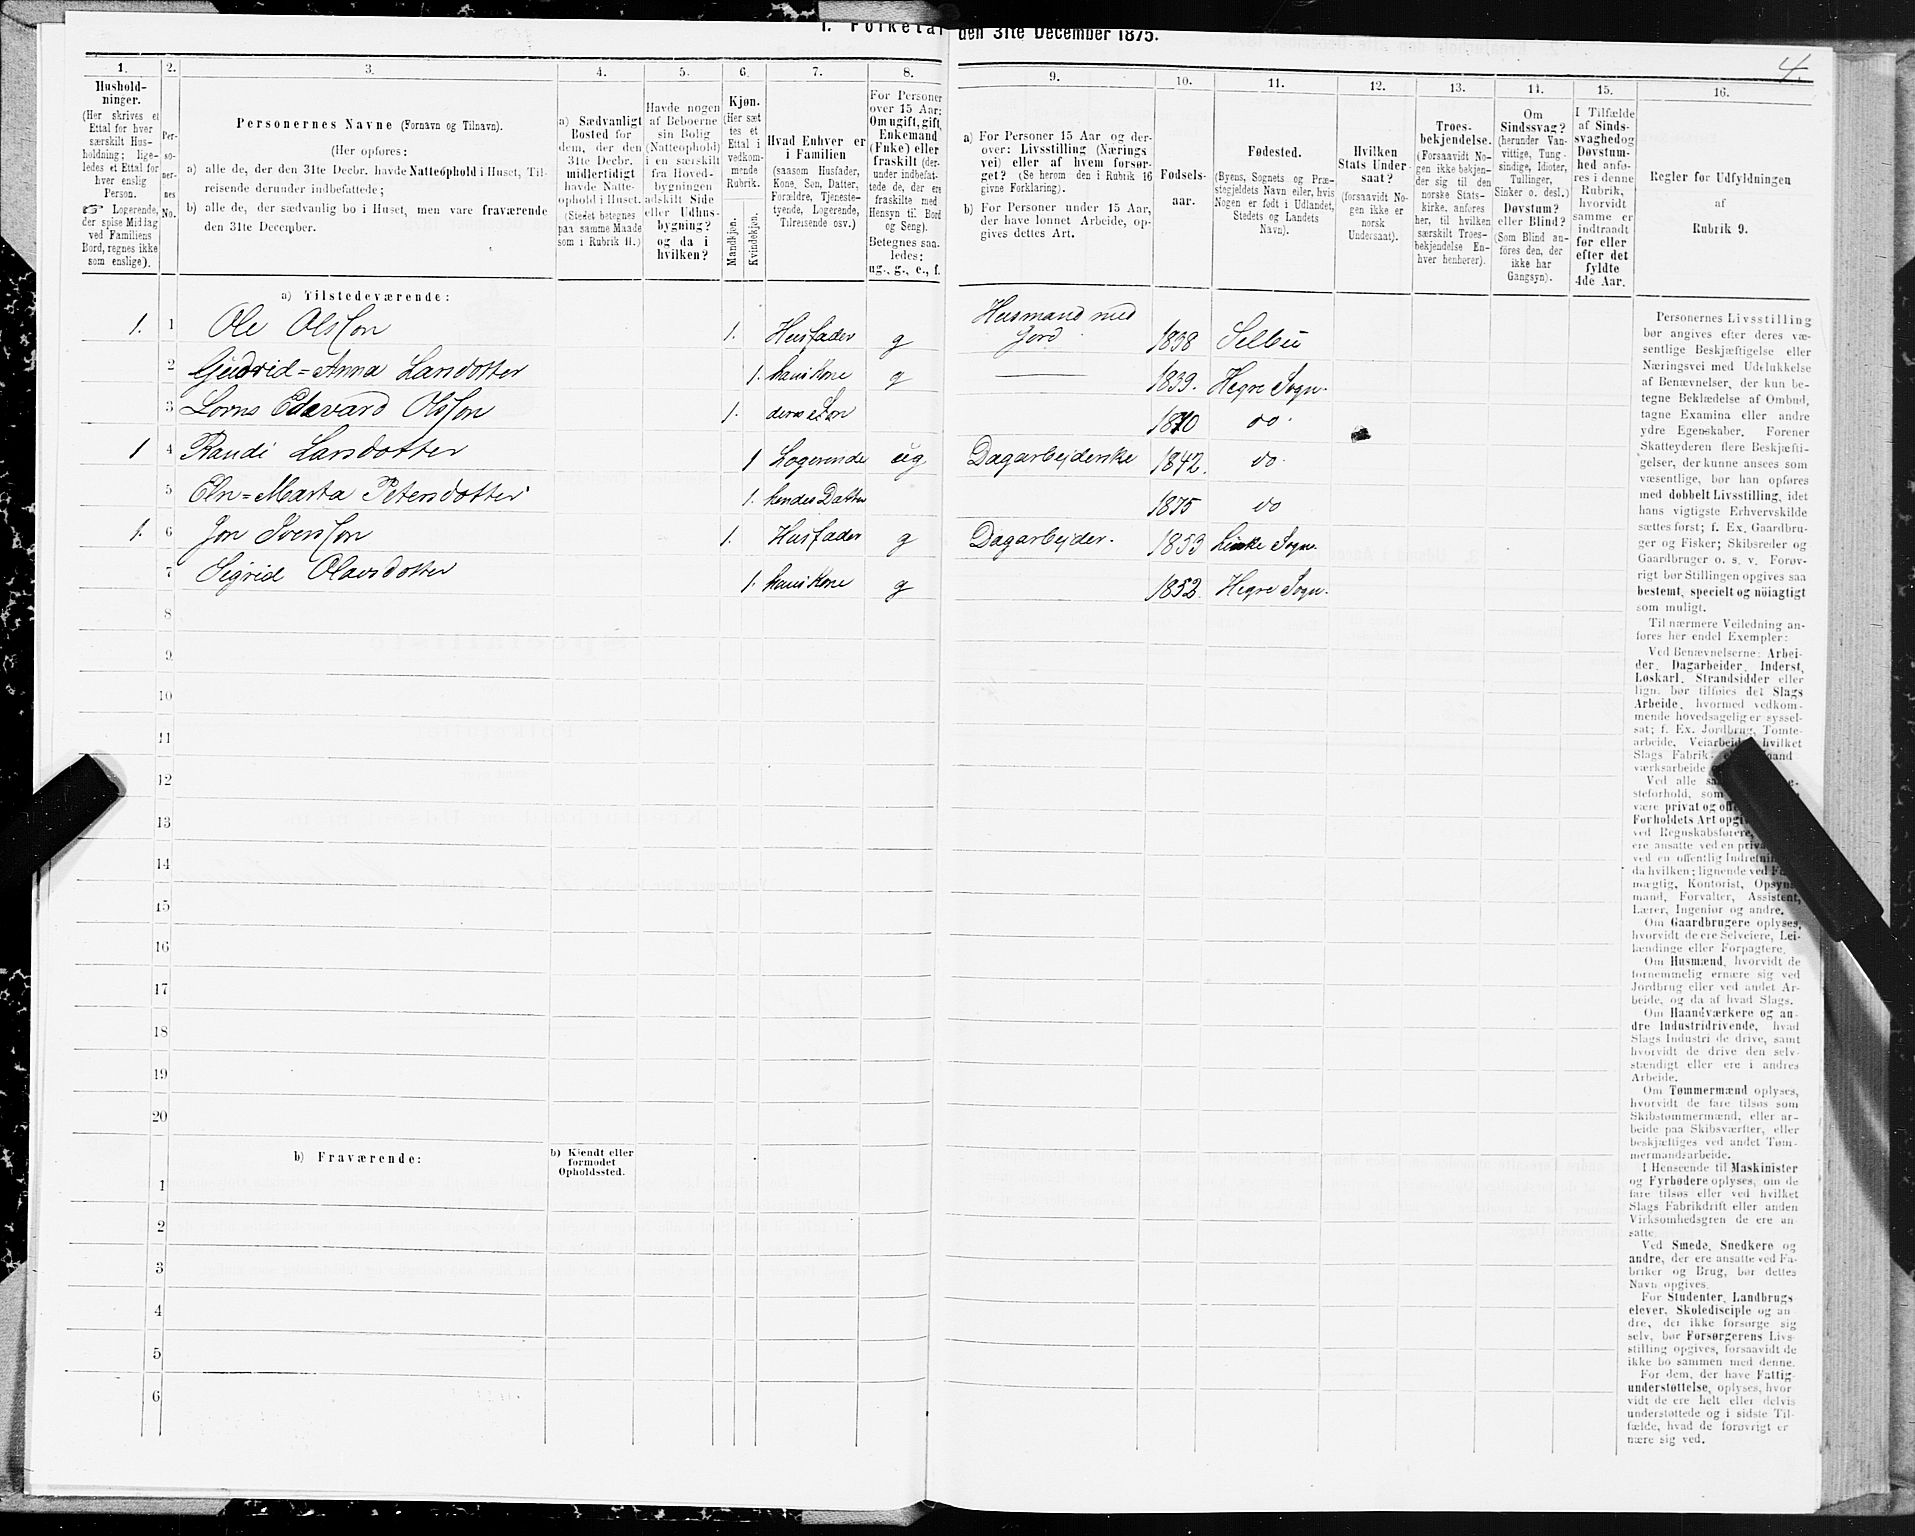 1. Folketal den 31te December 1875.
4.
1. 2. 3. 4. 5. 6. 7. 8. 9. 10. 11. 12. 13. 14. 15. 16.
Hushold-
ninger.
(Her skrives et
Ettal for hver
særskilt Hus-
holdning; lige-
ledes et Ettal for
hver enslig
Person.
Logerende,
der spise Middag
ved Familiens
Bord, regnes ikke
som enslige).
Per-
so-
ner-
nes
No.
Personernes Navne (Fornavn og Tilnavn).
(Her opføres:
a) alle de, der den 31te Decbr. havde Natteophold i Huset, Til-
reisende derunder indbefattede;
b) alle de, der sædvanlig bo i Huset, men vare fraværende
den 31te December.
a) Sædvanligt
Bosted for
dem, der den
31te Decbr.
midlertidigt
havde Natte-
ophold i Huset.
(Stedet betegnes
paa samme Maade
som i Rubrik 11.)
Havde nogen
af Beboerne
sin Bolig
(Natteophold)
i en særskilt
fra Hoved-
bygningen
adskilt Side
eller Udhus-
bygning?
og da i
hvilken?
Kjøn.
(Her sæt-
tes et
Ettal i
vedkom-
mende
Rubrik.
Mandkjøn.
Kvindekjøn.
Hvad Enhver er
i Familien
(saasom Husfader,
Kone, Søn, Datter,
Forældre, Tjeneste-
tyende, Logerende,
Tilreisende osv.)
For Personer
over 15 Aar:
Om ugift, gift,
Enkemand
(Enke) eller
fraskilt (der-
under indbefat-
tede de, der ere
fraskilte med
Hensyn til Bord
og Seng).
Betegnes saa-
ledes:
ug., g., e., f.
a) For Personer 15 Aar og der-
over: Livsstilling (Nærings-
vei) eller af hvem forsør-
get? (Se herom den i Rubrik 16
givne Forklaring).
b) For Personer under 15 Aar,
der have lønnet Arbeide, op-
gives dettes Art.
Fødsels-
aar.
Fødested.
(Byens, Sognets og Præ-
stegjeldets Navn eller, hvis
Nogen er født i Udlandet,
Stedets og Landets
Navn).
Hvilken
Stats Under-
saat?
(forsaavidt No-
gen ikke er
norsk
Undersaat).
Troes-
bekjendelse.
(Forsaavidt No-
gen ikke bekjen-
der sig til den
norske Stats-
kirke, anføres
her, til hvilken
særskilt Troes-
bekjendelse En-
hver henhører).
Om
Sindssvag?
(herunder Van-
vittige, Tung-
sindige, Idioter,
Tullinger,
Sinker o. desl.)
Døvstum?
eller Blind?
(Som Blind an-
føres den, der
ikke har
Gangsyn).
I Tilfælde
af Sinds-
svaghed og
Døvstum-
hed anfø-
res i denne
Rubrik,
hvorvidt
samme er
indtraadt
før eller
efter det
fyldte
4de Aar.
Regler for Udfyldningen
af
Rubrik 9.
a) Tilstedeværende:
1. 1 Ole Olsson 1. Husfader g Husmand med Jord 1838 Selbu
2 Gudrid=Anna Larsdotter 1. hans Kone g 1839. Hegre Sogn.
3 Lorns Edevard Olsson 1. deres Søn 1870 do.
1 4 Randi Larsdotter 1 Logerende ug Dagarbejderske 1842. do
5 Eln=Marta Petersdotter 1. hendes Datter 1875 do
1. 6 Jon Svensson 1. Husfader g Dagarbejder. 1853 Sogn.
7 Sigrid Olavsdotter 1. hans Kone g 1852. Hegre Sogn.
8
9
10
11
12
13
14
15
16
17
18
19
20
b) Fraværende:
b) Kjendt eller
formodet
Opholdssted.
1
2
3
4
5
6
Personernes Livsstilling
bør angives efter deres væ-
sentlige Beskjæftigelse eller
Næringsvei med Udelukkelse
af Benævnelser, der kun be-
tegne Beklædelse af Ombud,
tagne Examina eller andre
ydre Egenskaber. Forener
Skatteyderen flere Beskjæfti-
gelser, der kunne ansees som
væsentlige, bør han opføres
med dobbelt Livsstilling, idet
hans vigtigste Erhvervskilde
sættes først; f. Ex. Gaardbru-
ger og Fisker; Skibsreder og
Gaardbruger o. s. v. Forøv-
rigt bør Stillingen opgives saa
bestemt, specielt og nöiagtigt
som muligt.
Til nærmere Veiledning an-
føres her endel Exempler:
Ved Benævnelserne: Arbei-
der, Dagarbeider, Inderst,
Løskarl, Strandsidder eller
lign. bør tilføies det Slags
Arbeide, hvormed vedkom-
mende hovedsagelig er syssel-
sat; f. Ex. Jordbrug, Tomte-
arbeide, Veiarbeide, hvilket
Slags Fabrik-
værksarbeide
Ved alle
steforhold, som
være privat og
Forholdets Art
ved Regnskabsførere,
ere ansatte ved en
ved en offentlig Indretning
da hvilken; lignende ved
mægtig, Kontorist, Opsyns-
mand, Forvalter, Assistent,
Lærer, Ingeniør og andre.
Om Gaardbrugere oplyses,
hvorvidt de ere Selveiere, Lei-
lændinge eller Forpagtere.
Om Husmænd, hvorvidt de
fornemmelig ernære sig ved
Jordbrug eller ved andet Ar-
beide, og da af hvad Slags.
Om Haandværkere og an-
dre Industridrivende, hvad
Slags Industri de drive, samt
hvorvidt de drive den selv-
stændigt eller ere i andres
Arbeide.
Om Tømmermænd oplyses,
hvorvidt de fare tilsøs som
Skibstømmermænd, eller ar-
beide paa Skibsværfter, eller
beskjæftiges ved andet Tøm-
mermandsarbeide.
I Henseende til Maskinister
og Fyrbødere oplyses, om de
fare tilsøs eller ved hvilket
Slags Fabrikdrift eller anden
Virksomhedsgren de ere an-
satte.
Ved Smede, Snedkere og
andre, der ere ansatte ved Fa-
briker og Brug, bør dettes
Navn opgives.
For Studenter, Landbrugs-
elever, Skoledisciple og an-
dre, der ikke forsørge sig
selv, bør Forsørgerens Livs-
stilling opgives, forsaavidt de
ikke bo sammen med denne.
For dem, der have Fattig-
understøttelse, oplyses, hvor-
vidt de ere helt eller delvis
understøttede og i sidste Til-
fælde, hvad de forøvrigt er-
nære sig ved.